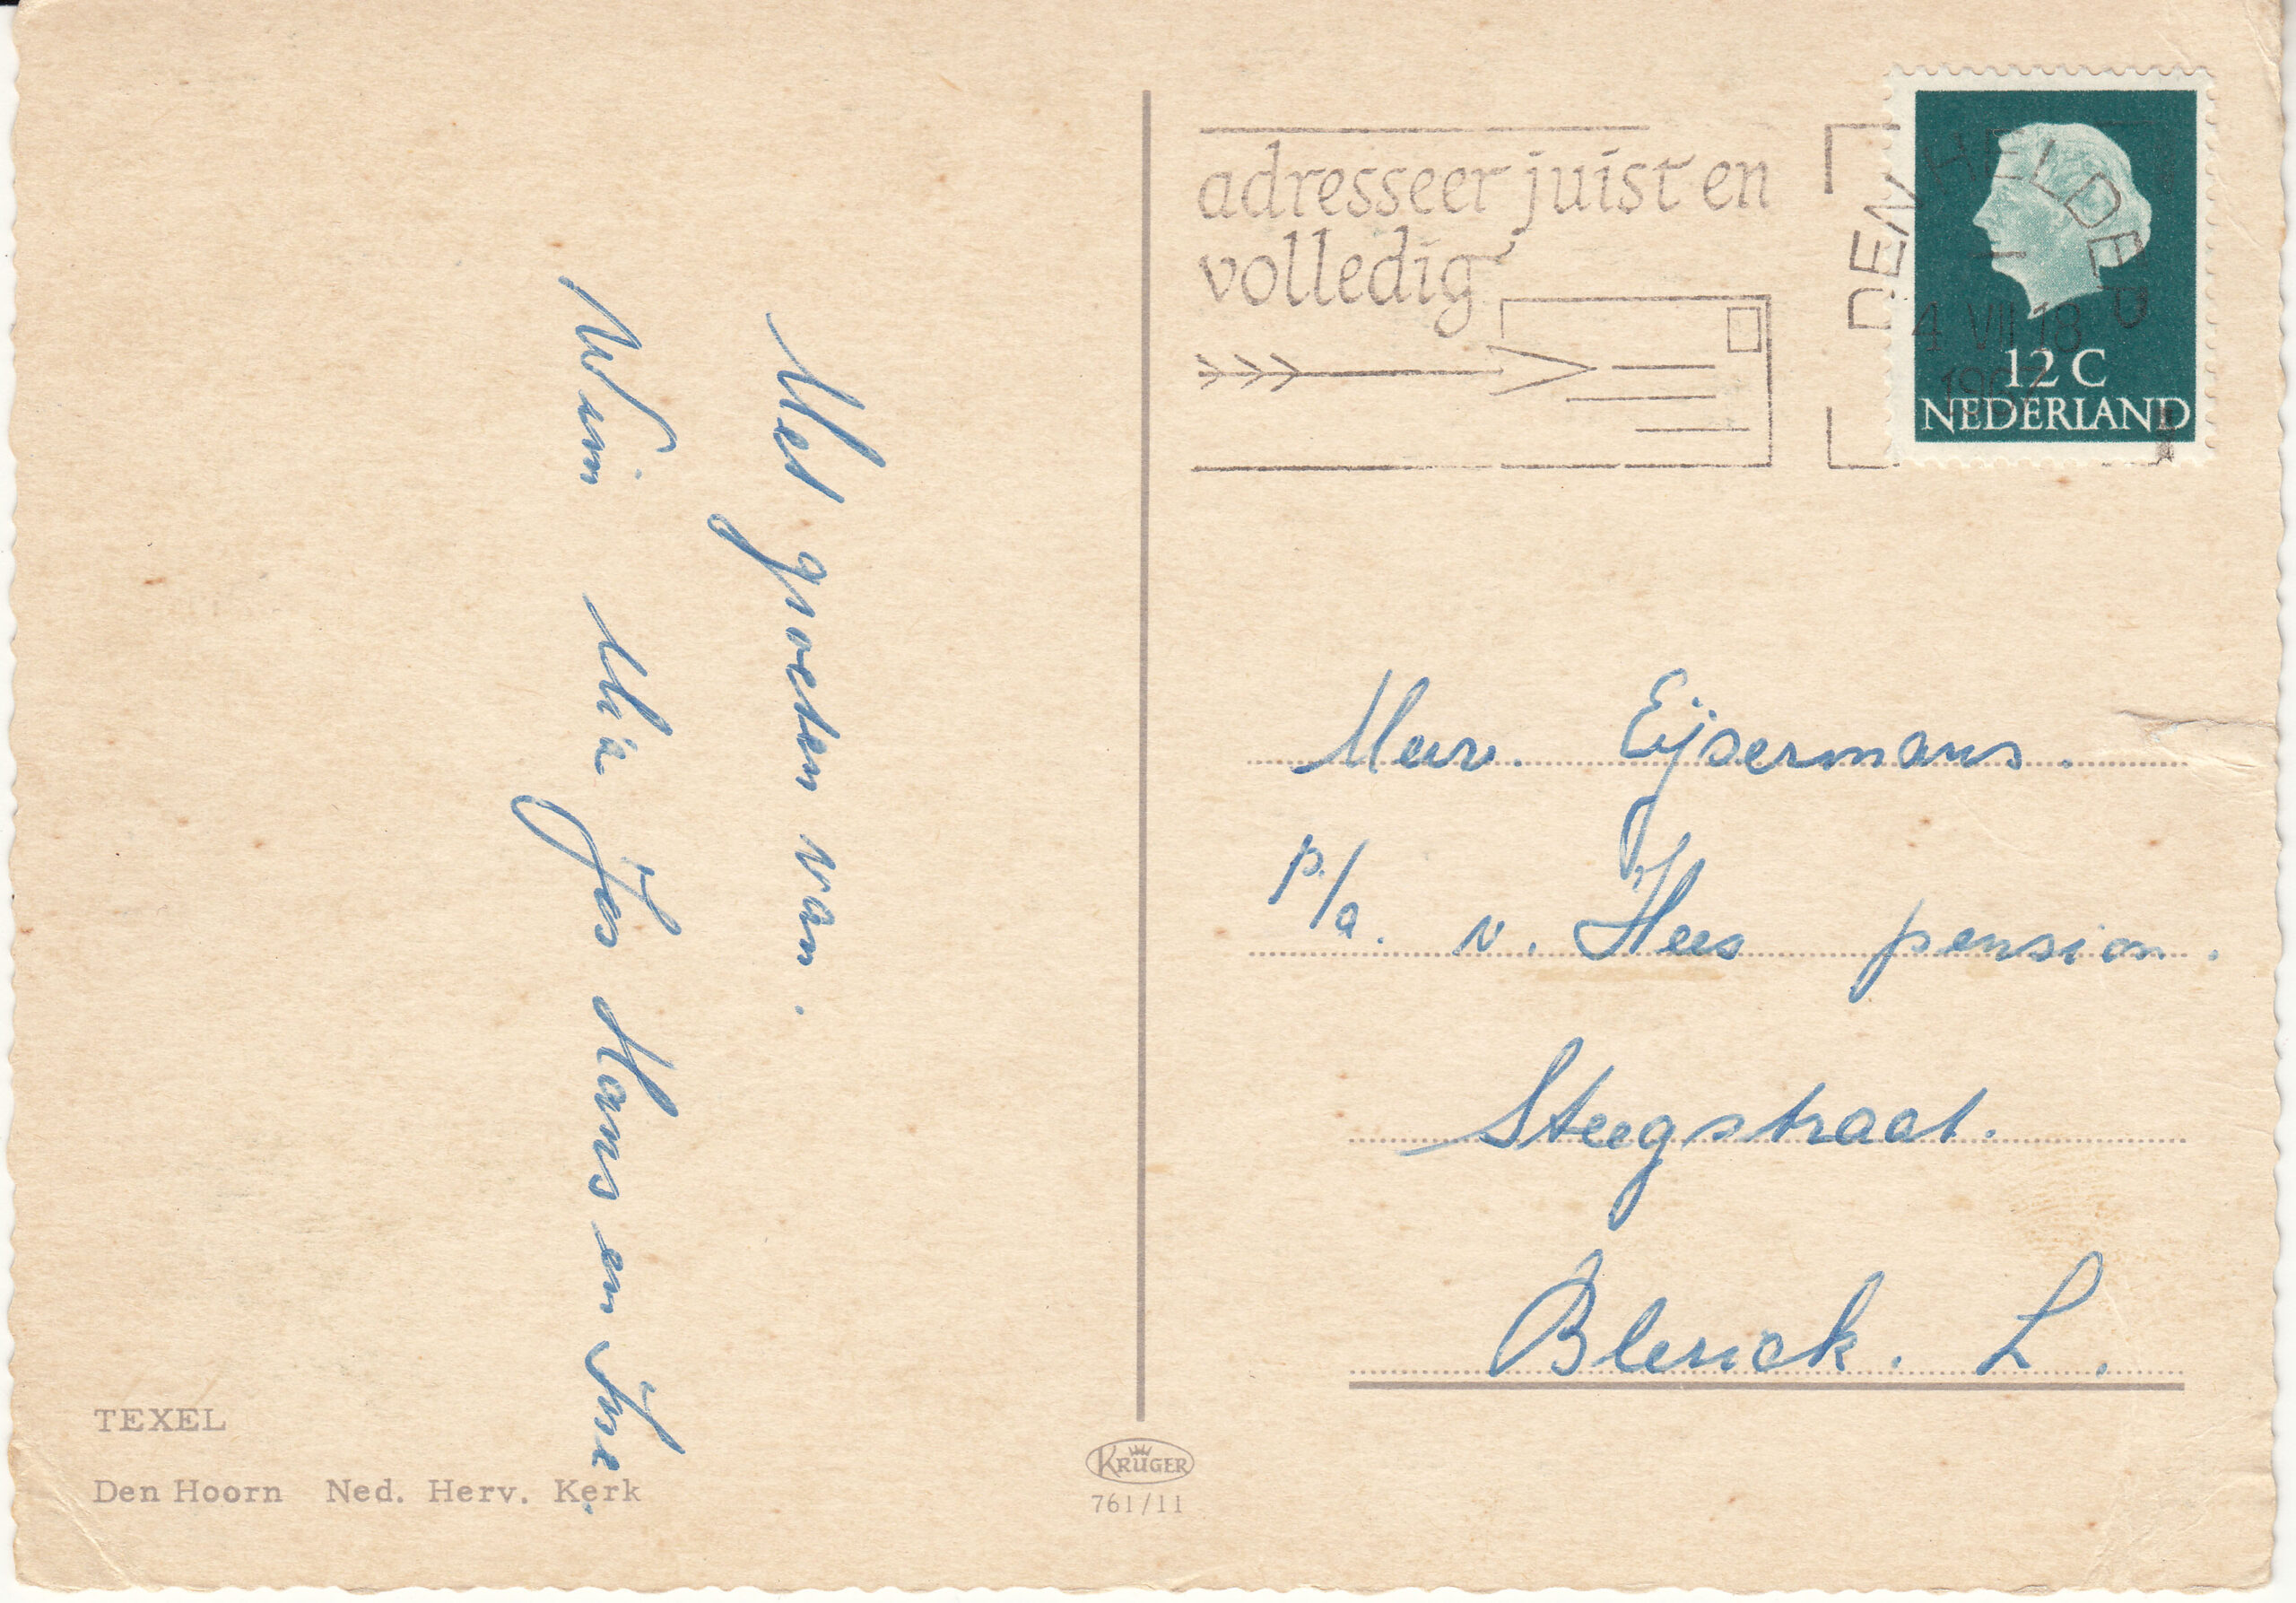 Met groeten van.
Wim Mia Jos Hans en Ine.
TEXEL
Den Hoorn Ned. Herv. Kerk
KRÜGER
761/11
adresseer juist en
volledig
DEN HELDER
4 VII 18
12 C
NEDERLAND
Mevr. Eijsermans.
p/a. v. Hees pension.
Steegstraat.
Blerick. L.